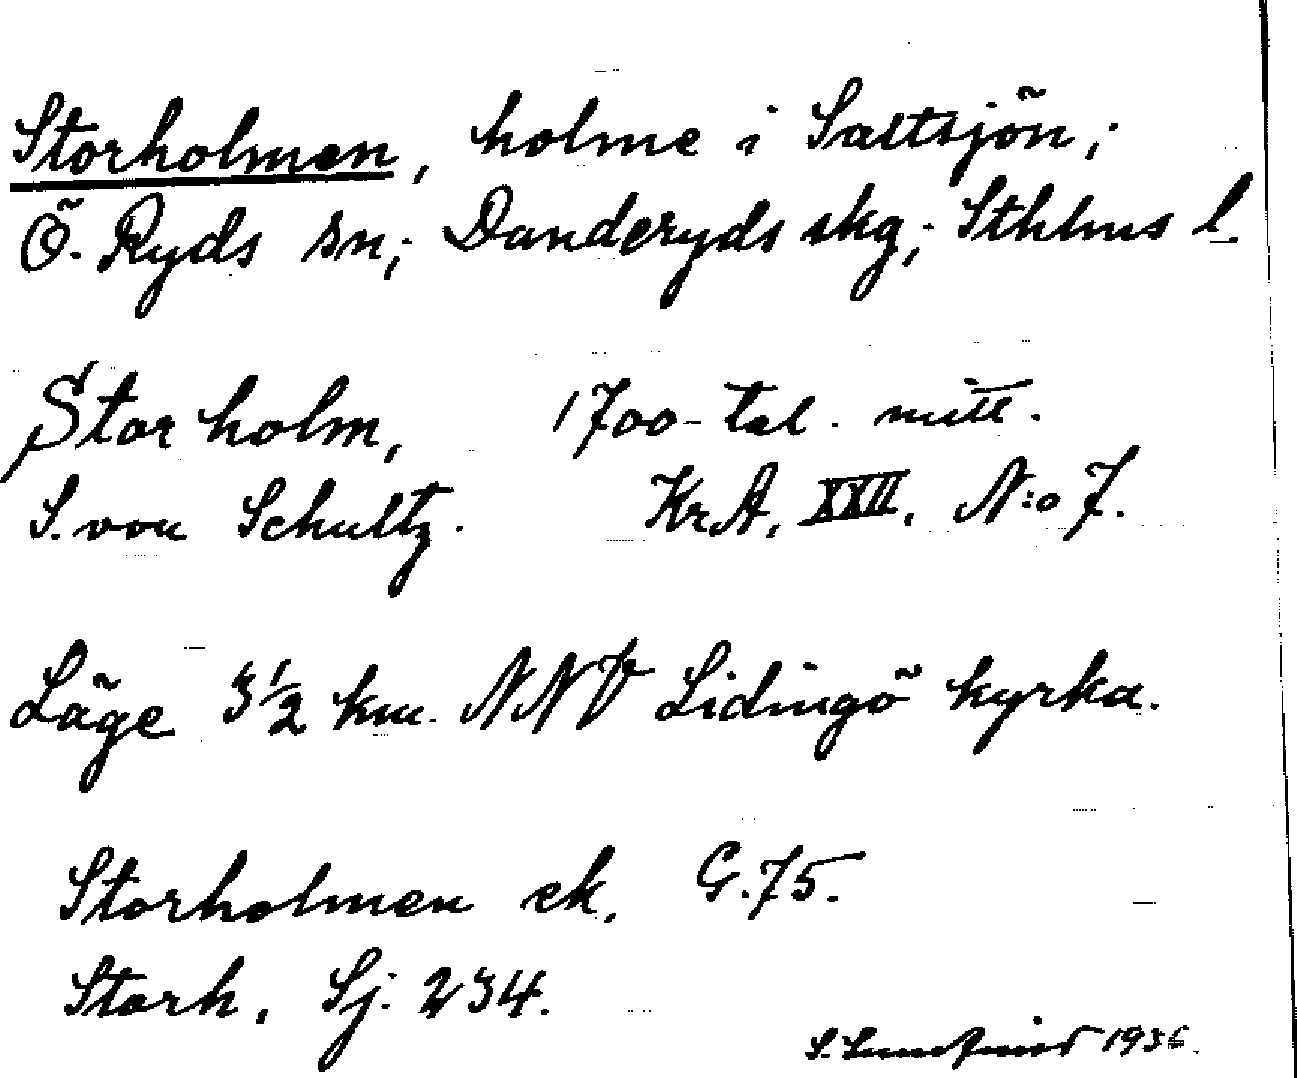 Storholmen, holme i Saltsjön;
Ö. Ryds sn; Danderyds skg; Sthlms l.
Storholm, 1700-tal. mitt.
S. von Schultz. KrA, XXII, N:o 7.
Läge 3 1/2 km. NNV Lidingö kyrka.
Storholmen ek. G. 75.
Storh. Sj. 234.
S. 1936